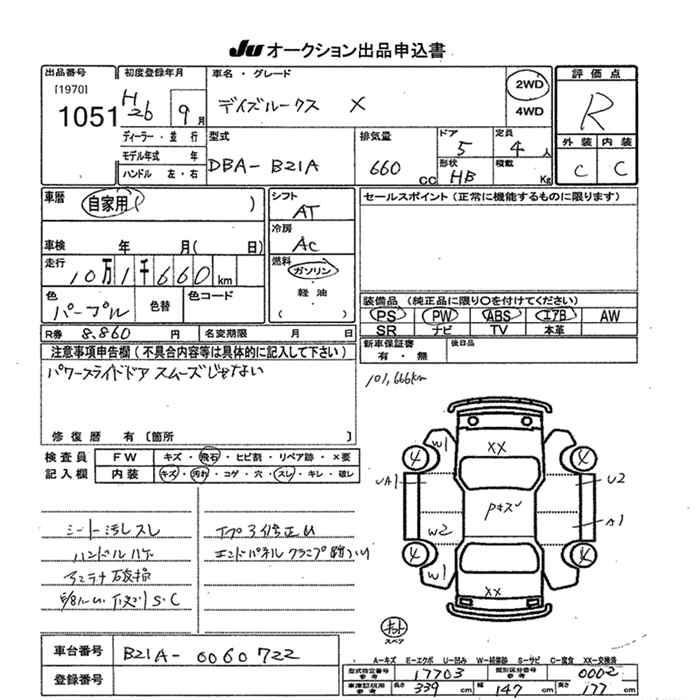 Ju オークション出品申込書
出品番号 初度登録年月 車名・グレード 評価点
[1970]
1051 H26 9月 デイズルークス X 2WD 4WD R
ディーラー・並行 型式 排気量 ドア 定員 外装 内装
モデル年式 年 DBA-B21A 660cc 5 4人 C C
ハンドル 左・右 形状 HB 積載 Kg
車歴 自家用( ) シフト AT セールスポイント(正常に機能するものに限ります)
冷房 AC
車検 年 月( 日)
走行 10万1千660km 燃料 ガソリン・軽油 ( )
色 パープル 色替 色コード 装備品(純正品に限り○を付けてください)
PS PW ABS エアB AW
SR ナビ TV 本革
R券 8,860円 名変期限 月 日
新車保証書 有・無 後日品
注意事項申告欄(不具合内容等は具体的に記入して下さい)
パワースライドドア スムーズじゃない
101,666km
修復歴 有〔箇所 〕
検査員記入欄 FW キズ・飛石・ヒビ割・リペア跡・×要
内装 キズ・汚れ・コゲ・穴・スレ・キレ・破レ
シート汚レスレ
ハンドルハゲ
アンテナ破損
S.C
W1 XX
④ ④
UA1 U2
Pキズ
W2 A1
④ ④
W1 XX
スペア
A-キズ E-エクボ U-凹み W-補修跡 S-サビ C-腐食 XX-交換済
車台番号 B21A-0060722
登録番号
型式指定番号 参考 17703 類別区分番号 参考 0002
長さ 339cm 幅 147cm 高さ 177cm